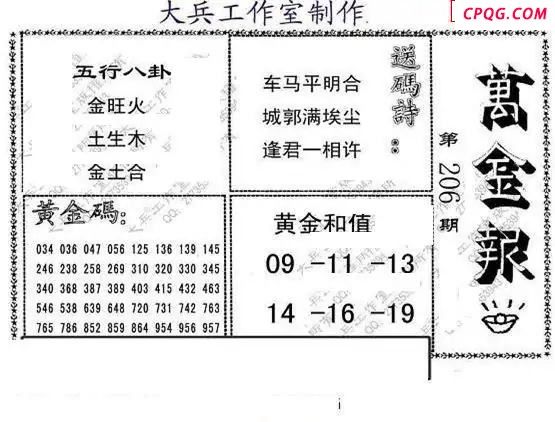 大兵工作室制作
CPQG.COM
五行八卦
金旺火
土生木
金土合
送碼詩：
车马平明合
城郭满埃尘
逢君一相许
萬金報
第206期
黃金碼:
034 036 047 056 125 136 139 145
246 238 258 269 310 320 330 345
340 368 387 389 403 415 432 463
546 538 639 648 720 731 742 763
765 786 852 859 864 954 956 957
黄金和值
09 -11 -13
14 -16 -19
i